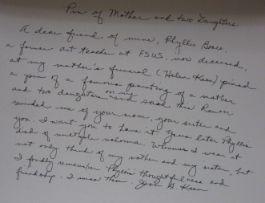 Pin of Mother and two Daughters
A dear friend of mine, Phyllis
a former art teacher at FSUS, now deceased,
at my mother's funeral (Helen Keen) pinned
a pin of a famous painting of a mother
and two daughters on me and said this
minded me of your mom, your sister and
you. I want you to have it. Years later Phyllis
died of multiple Whenever I wear it
not only think of my mother and my sister, but
I fondly remember Phyllis' thoughtfulness and
friendship. I miss them. Keen